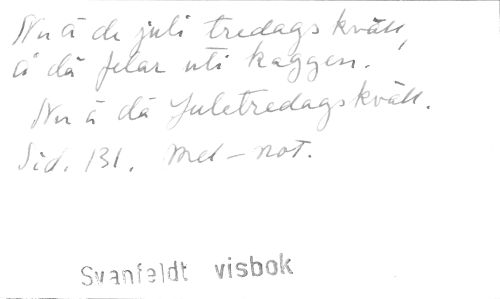 Nu ä de juli tredags kväll,
ä då felar uti kaggen.
Nu ä dä Juletredagskväll.
Sid. 131. Mel-not.
Svanfeldt visbok